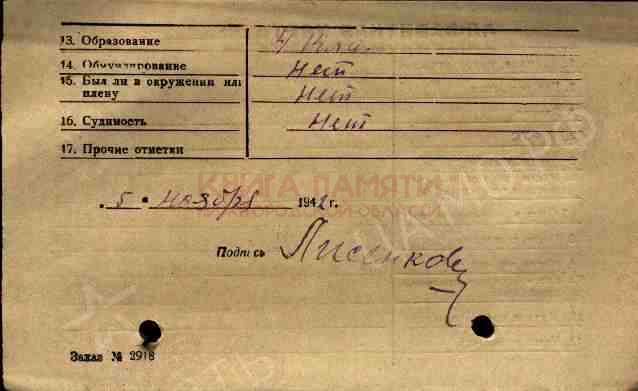 13. Образование 4 кла.
14. Обмундирование Нет
15. Был ли в окружении или
плену Нет
16. Судимость Нет
17. Прочие отметки
КНИГА ПАМЯТИ
"5" ноября 1942 г.
Подпись Лисенков
Заказ № 2918